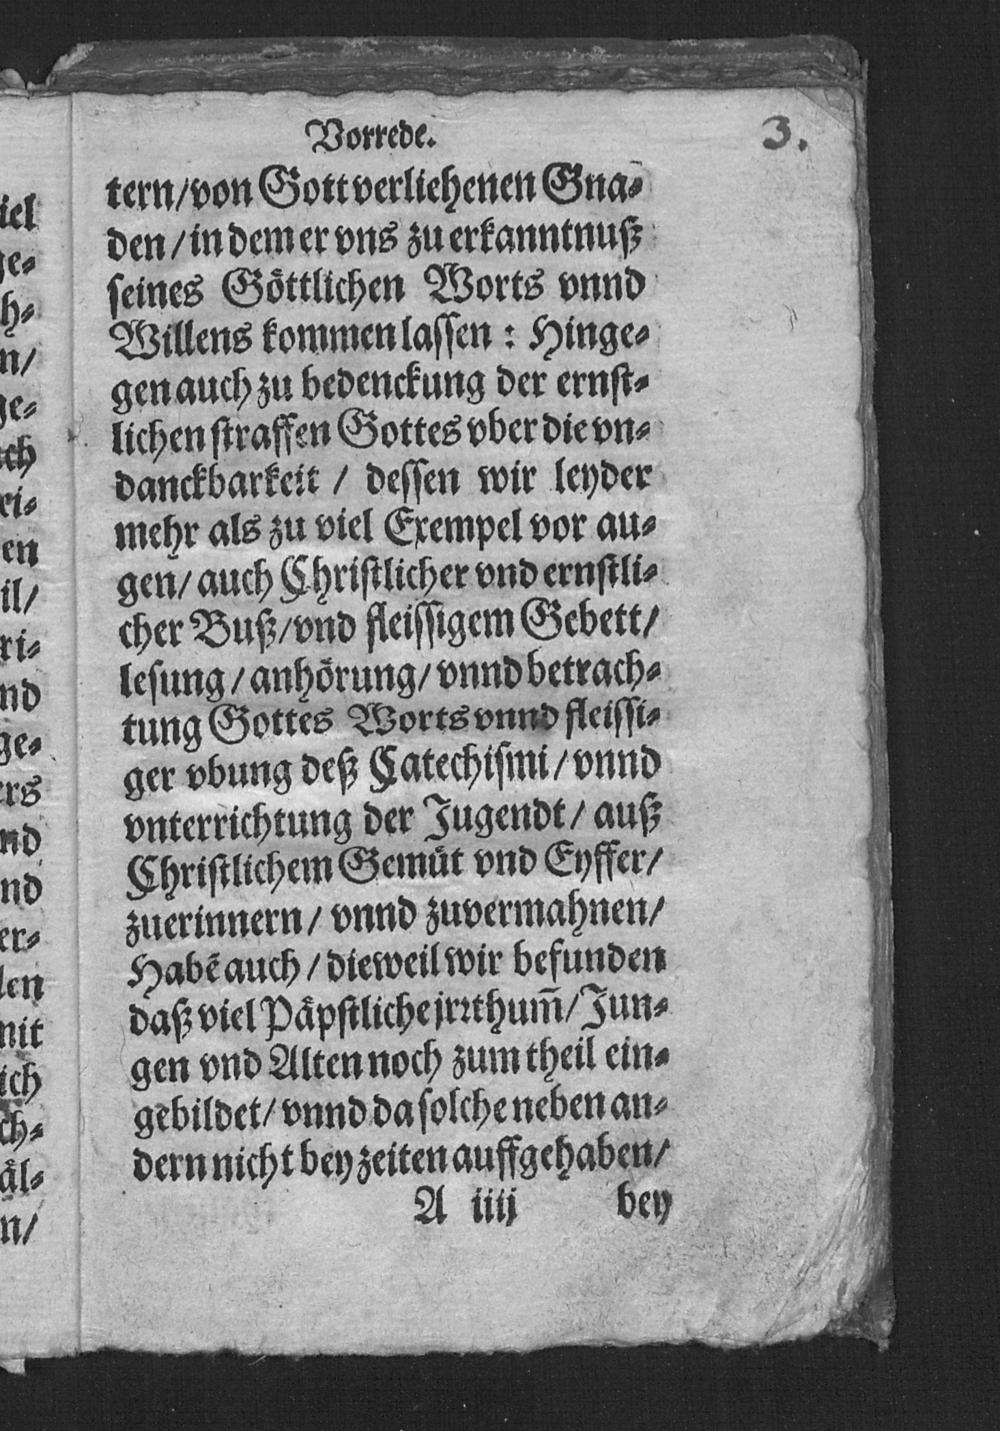 Vorrede.
3.
tern/von Gott verliehenen Gna-
den/in dem er vns zu erkanntnuß
seines Göttlichen Worts vnnd
Willens kommen lassen: Hinge-
gen auch zu bedenckung der ernst-
lichen straffen Gottes vber die vn-
danckbarkeit / dessen wir leyder
mehr als zu viel Exempel vor au-
gen/ auch Christlicher vnd ernstli-
cher Buß/vnd fleissigem Gebett/
lesung/anhörung/vnnd betrach-
tung Gottes Worts vnnd fleissi-
ger vbung deß Catechismi/vnnd
vnterrichtung der Jugendt/ auß
Christlichem Gemüt vnd Eyffer/
zuerinnern/ vnnd zuvermahnen/
Habē auch/dieweil wir befunden
daß viel Päpstliche jrrthum̃/Jun-
gen vnd Alten noch zum theil ein-
gebildet/vnnd da solche neben an-
dern nicht bey zeiten auffgehaben/
A iiij bey
iel
ge-
h-
n/
ge-
ch
ri-
en
il/
ri-
nd
ge-
ers
nd
nd
er-
len
mit
ich
ch-
äl-
n/